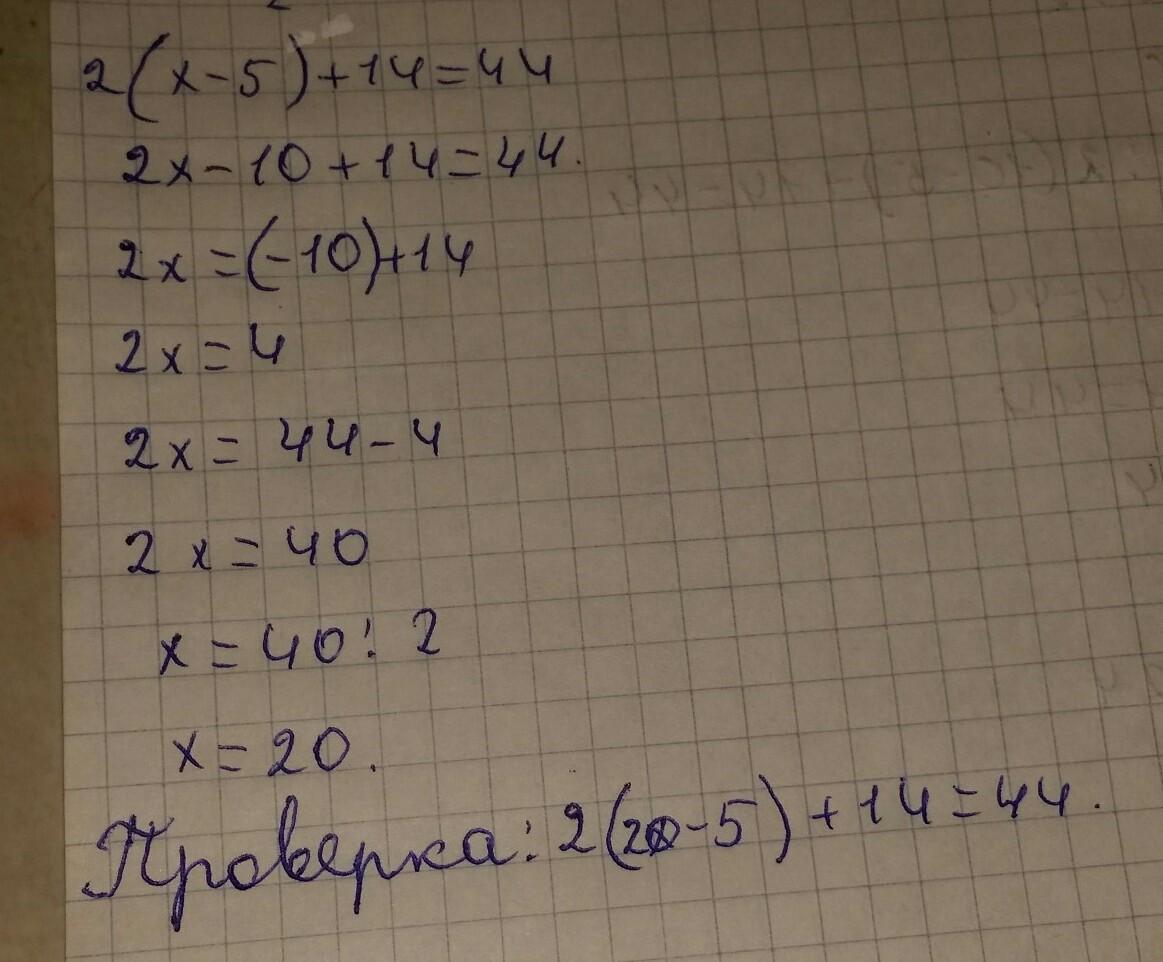 2(x-5)+14=44
2x-10+14=44.
2x=(-10)+14
2x=4
2x=44-4
2x=40
x=40:2
x=20.
Проверка: 2(20-5)+14=44.